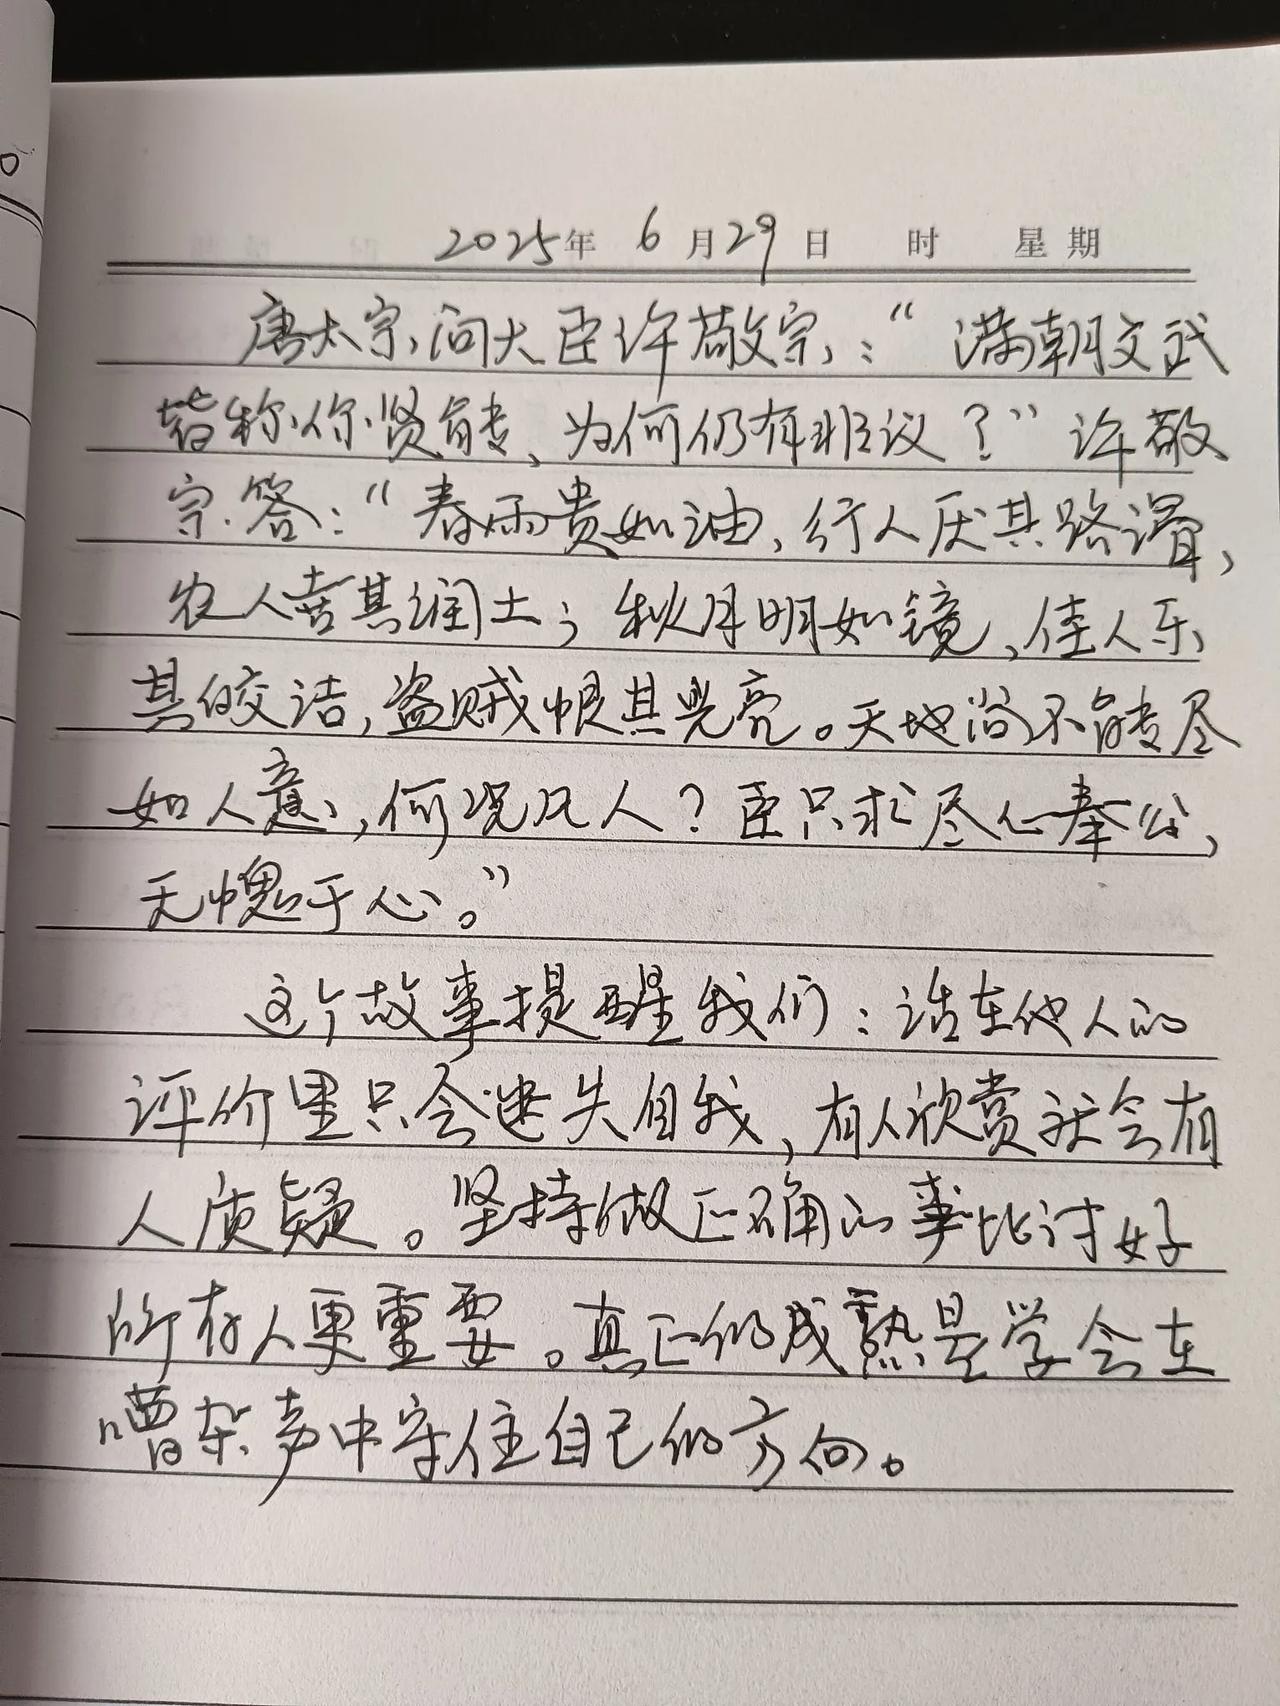 2025年 6月29日 时 星期
唐太宗问大臣许敬宗：“满朝文武
皆称你贤能、为何仍有非议？”许敬
宗答：“春雨贵如油，行人厌其路滑，
农人喜其润土；秋月明如镜，佳人乐
其皎洁，盗贼恨其光亮。天地尚不能尽
如人意，何况凡人？臣只求尽心奉公，
无愧于心。”
这个故事提醒我们：活在他人的
评价里只会迷失自我，有人欣赏就会有
人质疑。坚持做正确的事比讨好
所有人更重要。真正的成熟是学会在
嘈杂声中守住自己的方向。